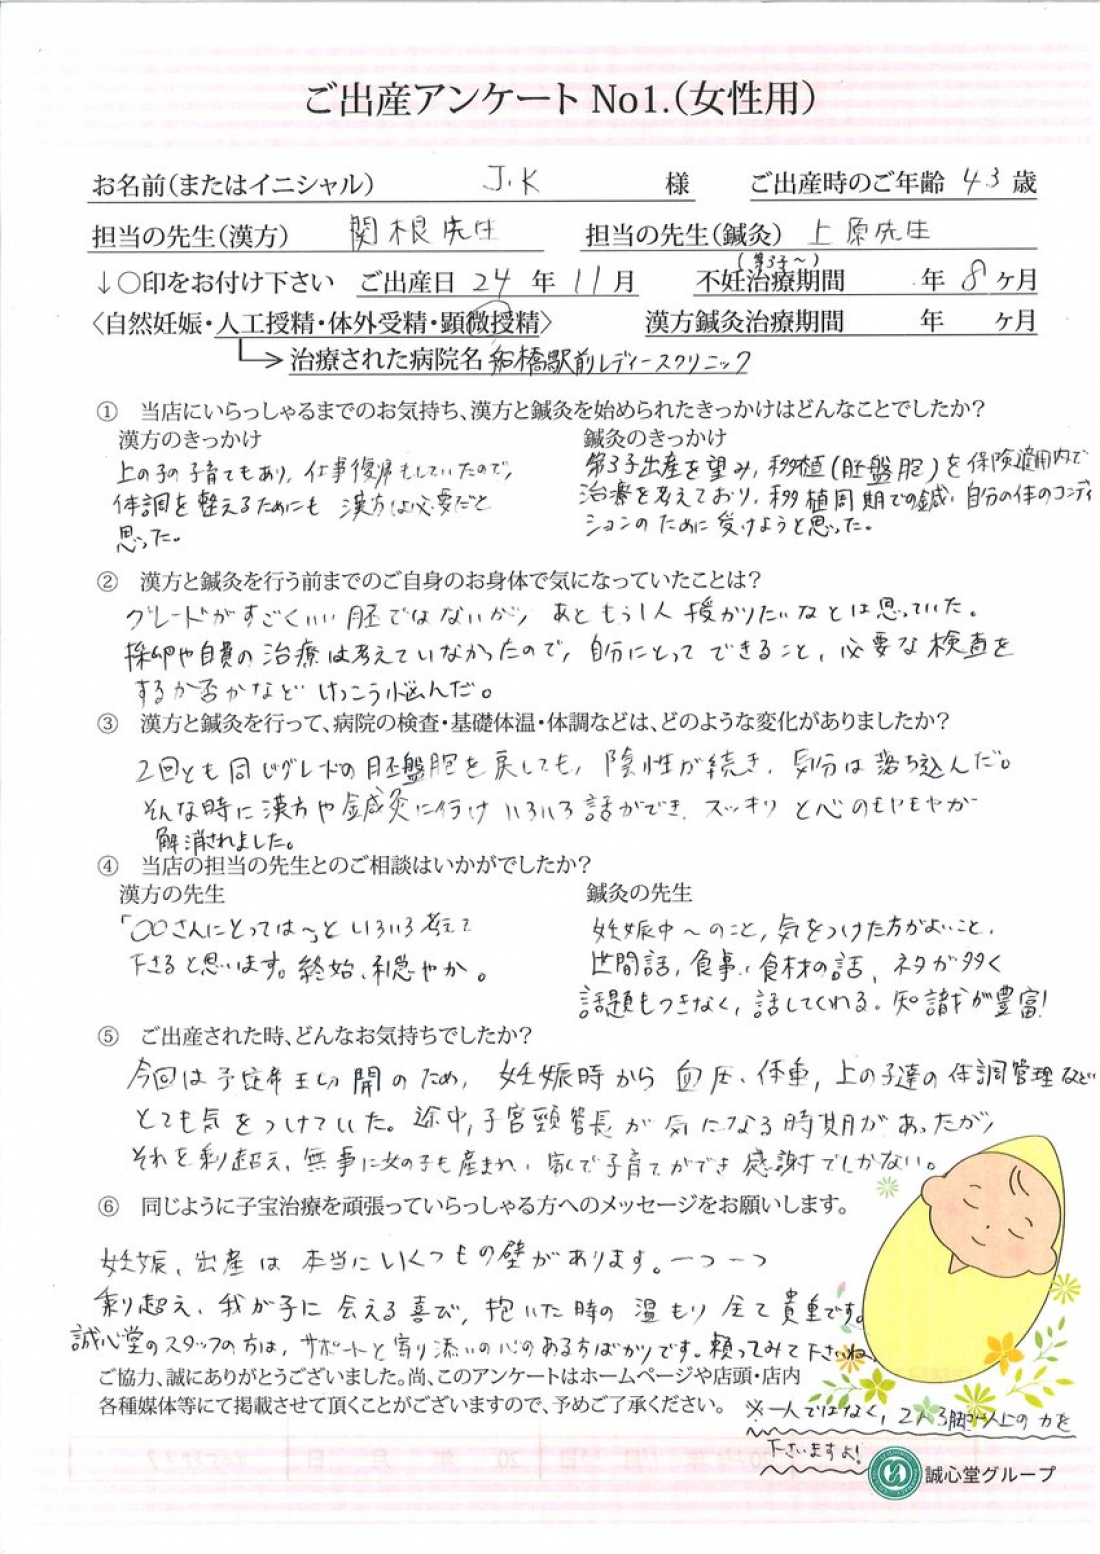 ご出産アンケート No1.（女性用）
お名前（またはイニシャル） J.K 様 ご出産時のご年齢 43 歳
担当の先生（漢方） 関根先生 担当の先生（鍼灸） 上原先生
（第3子〜）
↓〇印をお付け下さい ご出産日 24 年 11 月 不妊治療期間 年 8 ヶ月
〈自然妊娠・人工授精・体外受精・顕微授精〉 漢方鍼灸治療期間 年 ヶ月
治療された病院名 船橋駅前レディースクリニック
① 当店にいらっしゃるまでのお気持ち、漢方と鍼灸を始められたきっかけはどんなことでしたか？
漢方のきっかけ
上の子の子育てもあり、仕事復帰もしていたので、
体調を整えるためにも 漢方は必要だと
思った。
鍼灸のきっかけ
第3子出産を望み、移植（胚盤胞）を保険適用内で
治療を考えており、移植周期での鍼、自分の体のコンディ
ションのために受けようと思った。
② 漢方と鍼灸を行う前までのご自身のお身体で気になっていたことは？
グレードがすごくいい胚ではないが、あともう1人授かりたいなとは思っていた。
採卵や自費の治療は考えていなかったので、自分にとってできること、必要な検査を
するか否かなど けっこう悩んだ。
③ 漢方と鍼灸を行って、病院の検査・基礎体温・体調などは、どのような変化がありましたか？
2回とも同じグレードの胚盤胞を戻しても、陰性が続き、気分は落ち込んだ。
そんな時に漢方や鍼灸に行け いろいろ話ができ、スッキリと心のモヤモヤが
解消されました。
④ 当店の担当の先生とのご相談はいかがでしたか？
漢方の先生
「〇〇さんにとっては〜」といろいろ考えて
下さると思います。終始、和穏やか。
鍼灸の先生
妊娠中〜のこと、気をつけた方がよいこと、
世間話、食事、食材の話、ネタが多く
話題もつきなく、話してくれる。知識が豊富！
⑤ ご出産された時、どんなお気持ちでしたか？
今回は予定帝王切開のため、妊娠時から血圧、体重、上の子達の体調管理など
とても気をつけていた。途中、子宮頸管長が気になる時期があったが、
それを乗り超え、無事に女の子も産まれ、家で子育てができ感謝でしかない。
⑥ 同じように子宝治療を頑張っていらっしゃる方へのメッセージをお願いします。
妊娠、出産は本当にいくつもの壁があります。一つ一つ
乗り超え、我が子に会える喜び、抱いた時の温もり全て貴重です。
誠心堂のスタッフの方は、サポートと寄り添いの心のある方ばかりです。頼ってみて下さいね。
ご協力、誠にありがとうございました。尚、このアンケートはホームページや店頭・店内
各種媒体等にて掲載させて頂くことがございますので、予めご了承ください。
※一人ではなく、2人3脚以上の力を
下さいますよ！
誠心堂グループ